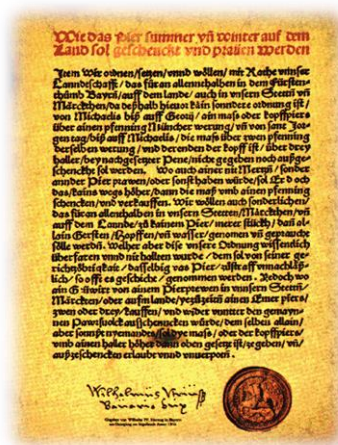 Wie das Pier summer vñ winter auf dem
Land sol geschenckt vnd praüen werden
Item Wir ordnen/setzen/vnnd wöllen/mit Rathe vnnser
Lanndtschafft/das für an allennthalben in dem Fürsten-
thůmb Bayrñ/auff dem lande/auch in vnsern Stettñ vñ
Märckthen/da deßhalb hieuor kain sonndere ordnung ist/
von Michaelis biß auff Georij/ain mass oder kopffpiers
über ainen pfenning Müncher werung/vñ von sant Jor-
gen tag/biß auff Michaelis/die mass über zwen pfenning
derselben werung/vnd derenden der kopff ist/über drey
haller/bey nachgesetzter Pene/nicht gegeben noch außge-
schenckht sol werden. Wo auch ainer nit Mertzñ/sonder
annder Pier prawen/oder sonst haben würde/sol Er doch
das/kains wegs höher/dann die maß vmb ainen pfenning
schencken/vnd verkauffen. Wir wöllen auch sonderlichen/
das für an allenthalben in vnsern Stetten/Märckthen/vñ
auff dem Lannde/zů kainem Pier/merer stückh/dañ al-
lain Gersten/Hopffen/vñ wasser/genomen vñ gepraucht
sölle werdñ. Welher aber dise vnsere Ordnung wissendlich
überfaren vnnd nit hallten wurde/dem sol von seiner ge-
richtzöbrigkait/dasselbig vas Pier/zůstraff vnnachläß-
lich/so offt es geschicht/genommen werden. Yedoch wo
ain Gwirt von ainem Pierprewen in vnnsern Stettñ
Märckten/oder aufm lande/yezůzeitñ ainen Emer piers/
zwen oder drey/kauffen/vnd wider vnnter den gemayn-
nen Pawrsuolck ausschencken würde/dem selben allain/
aber sonnst nyemandes/sol dye mass/oder der kopffpiers/
vmb ainen haller höher dann oben gesetzt ist/ze geben/vñ/
außzeschencken erlaubt vnnd vnuerpotñ.